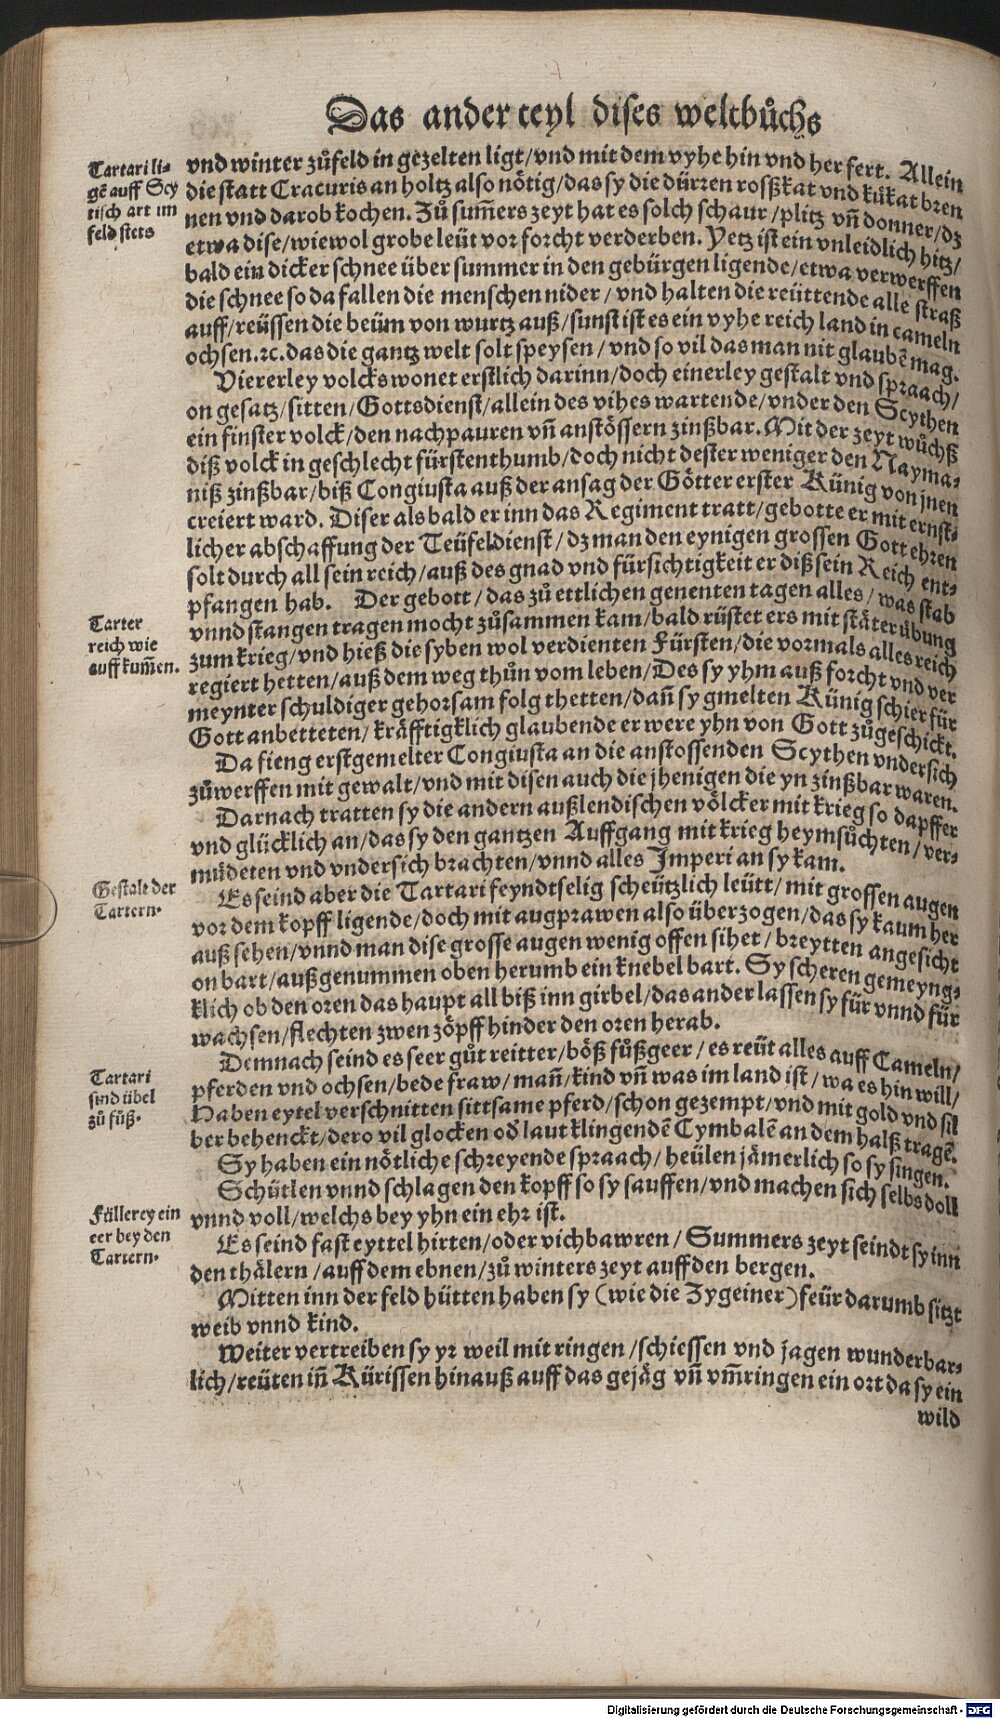 Das ander teyl dises weltbůchs
Tartari li-
gē auff Scy
tisch art im
feld stets
vnd winter zůfeld in gezelten ligt/vnd mit dem vyhe hin vnd her fert. Allein
die statt Cracuris an holtz also nötig/das sy die dürren rosßkat vnd kůkat bren
nen vnd darob kochen. Zů sum̄ers zeyt hat es solch schaur/plitz vn̄ donner/dz
etwa dise/wiewol grobe leüt vor forcht verderben. Yetz ist ein vnleidlich hitz/
bald ein dicker schnee über summer in den gebürgen ligende/etwa verwerffen
die schnee so da fallen die menschen nider/vnd halten die reüttende alle straß
auff/reüssen die beüm von wurtz auß/sunst ist es ein vyhe reich land in cameln
ochsen.ꝛc.das die gantz welt solt speysen/vnd so vil das man nit glaubē mag.
Viererley volcks wonet erstlich darinn/doch einerley gestalt vnd spraach/
on gesatz/sitten/Gottsdienst/allein des vihes wartende/vnder den Scythen
ein finster volck/den nachpauren vn̄ anstössern zinßbar. Mit der zeyt wůchß
diß volck in geschlecht fürstenthumb/doch nicht dester weniger den Nayma-
niß zinßbar/biß Congiusta auß der ansag der Götter erster Künig von jnen
creiert ward. Diser als bald er inn das Regiment tratt/gebotte er mit ernst-
licher abschaffung der Teüfeldienst/dz man den eynigen grossen Gott ehren
solt durch all sein reich/auß des gnad vnd fürsichtigkeit er diß sein Reich ent-
pfangen hab. Der gebott/das zů ettlichen genenten tagen alles/was stab
Tarter
reich wie
auff kum̄en.
vnnd stangen tragen mocht zůsammen kam/bald rüstet ers mit stäter übung
zum krieg/vnd hieß die syben wol verdienten Fürsten/die vormals alles reich
regiert hetten/auß dem weg thůn vom leben/Des sy yhm auß forcht vnd ver
meynter schuldiger gehorsam folg thetten/dan̄ sy gmelten Künig schier für
Gott anbetteten/kräfftigklich glaubende er were yhn von Gott zůgeschickt.
Da fieng erstgemelter Congiusta an die anstossenden Scythen vndersich
zůwerffen mit gewalt/vnd mit disen auch die jhenigen die yn zinßbar waren.
Darnach tratten sy die andern außlendischen völcker mit krieg so dapffer
vnd glücklich an/das sy den gantzen Auffgang mit krieg heymsůchten/ver-
můdeten vnd vndersich brachten/vnnd alles Imperi an sy kam.
Gestalt der
Tartern.
Es seind aber die Tartari feyndtselig scheützlich leütt/mit grossen augen
vor dem kopff ligende/doch mit augprawen also überzogen/das sy kaum her
auß sehen/vnnd man dise grosse augen wenig offen sihet/breytten angesicht
on bart/außgenummen oben herumb ein knebel bart. Sy scheren gemeyng-
klich ob den oren das haupt all biß inn girbel/das ander lassen sy für vnnd für
wachsen/flechten zwen zöpff hinder den oren herab.
Demnach seind es seer gůt reitter/böß fůßgeer/es reüt alles auff Cameln/
Tartari
sind übel
zů fůß.
pferden vnd ochsen/bede fraw/man̄/kind vn̄ was im land ist/wa es hin will/
Haben eytel verschnitten sittsame pferd/schon gezempt/vnd mit gold vnd sil
ber behenckt/dero vil glocken oď laut klingendē Cymbalē an dem halß tragē.
Sy haben ein nötliche schreyende spraach/heülen jämerlich so sy singen.
Schütlen vnnd schlagen den kopff so sy sauffen/vnd machen sich selbs doll
Füllerey ein
eer bey den
Tartern.
vnnd voll/welchs bey yhn ein ehr ist.
Es seind fast eyttel hirten/oder vichbawren/Summers zeyt seindt sy inn
den thälern/auff dem ebnen/zů winters zeyt auff den bergen.
Mitten inn der feld hütten haben sy (wie die Zygeiner) feür darumb sitzt
weib vnnd kind.
Weiter vertreiben sy yr weil mit ringen/schiessen vnd jagen wunderbar-
lich/reüten in̄ Kürissen hinauß auff das gejäg vn̄ vm̄ringen ein ort da sy ein
wild
Digitalisierung gefördert durch die Deutsche Forschungsgemeinschaft - DFG